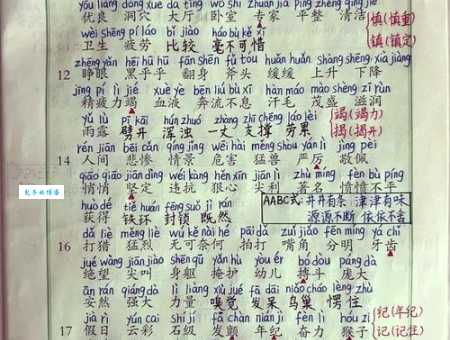 yōu liáng dòng xué dà tīng wò shì zhuān jiā píng zhěng qīng jié
优良 洞穴 大厅 卧室 专家 平整 清洁
慎(慎重)
wèi shēng pí láo bǐ jiào háo bù kě xī
镇(镇定)
卫生 疲劳 比较 毫不可惜
zhēng yǎn hēi hū hū fān shēn fǔ tóu huǎn huǎn shàng shēng xià jiàng
12 睁眼 黑乎乎 翻身 斧头 缓缓 上升 下降
jīng pí lì jié xuè yè bēn liú bù xī hàn máo mào shèng zī rùn
精疲力竭 血液 奔流不息 汗毛 茂盛 滋润
竭(竭力)
yǔ lù pī kāi hún zhuó zhàng zhī chēng láo lèi
揭(揭开)
雨露 劈开 浑浊 一丈 支撑 劳累
rén jiān bēi cǎn qíng jǐng wēi hài měng shòu yán lì jìng pèi
14 人间 悲惨 情景 危害 猛兽 严厉 敬佩
qiāo qiāo jiān dìng wéi kàng hěn xīn jiān lì zhù míng fèn fèn bù píng
悄悄 坚定 违抗 狠心 尖利 著名 愤愤不平
huò dé tiě huán fēng suǒ jì rán
AABC式: 井井有条 津津有味
获得 铁环 封锁 既然
源源不断 依依不舍
dǎ liè měng liè wú kě nài hé pāi dǎ zuǐ jiǎo fēn míng yá chǐ
16 打猎 猛烈 无可奈何 拍打 嘴角 分明 牙齿
jué wàng jiān jiào shēn qū yǎn hù yòu ér bó dòu páng dà
绝望 尖叫 身躯 掩护 幼儿 搏斗 庞大
ān rán qiáng dà lì liàng xiù jué fā dāi niǎo cháo lèng zhù
安然 强大 力量 嗅觉 发呆 鸟巢 愣住
jià rì yún cai shí jí fā chàn nián jì fèn lì hóu zi
纪(年纪)
17 假日 云彩 石级 发颤 年纪 奋力 猴子
记(记住)